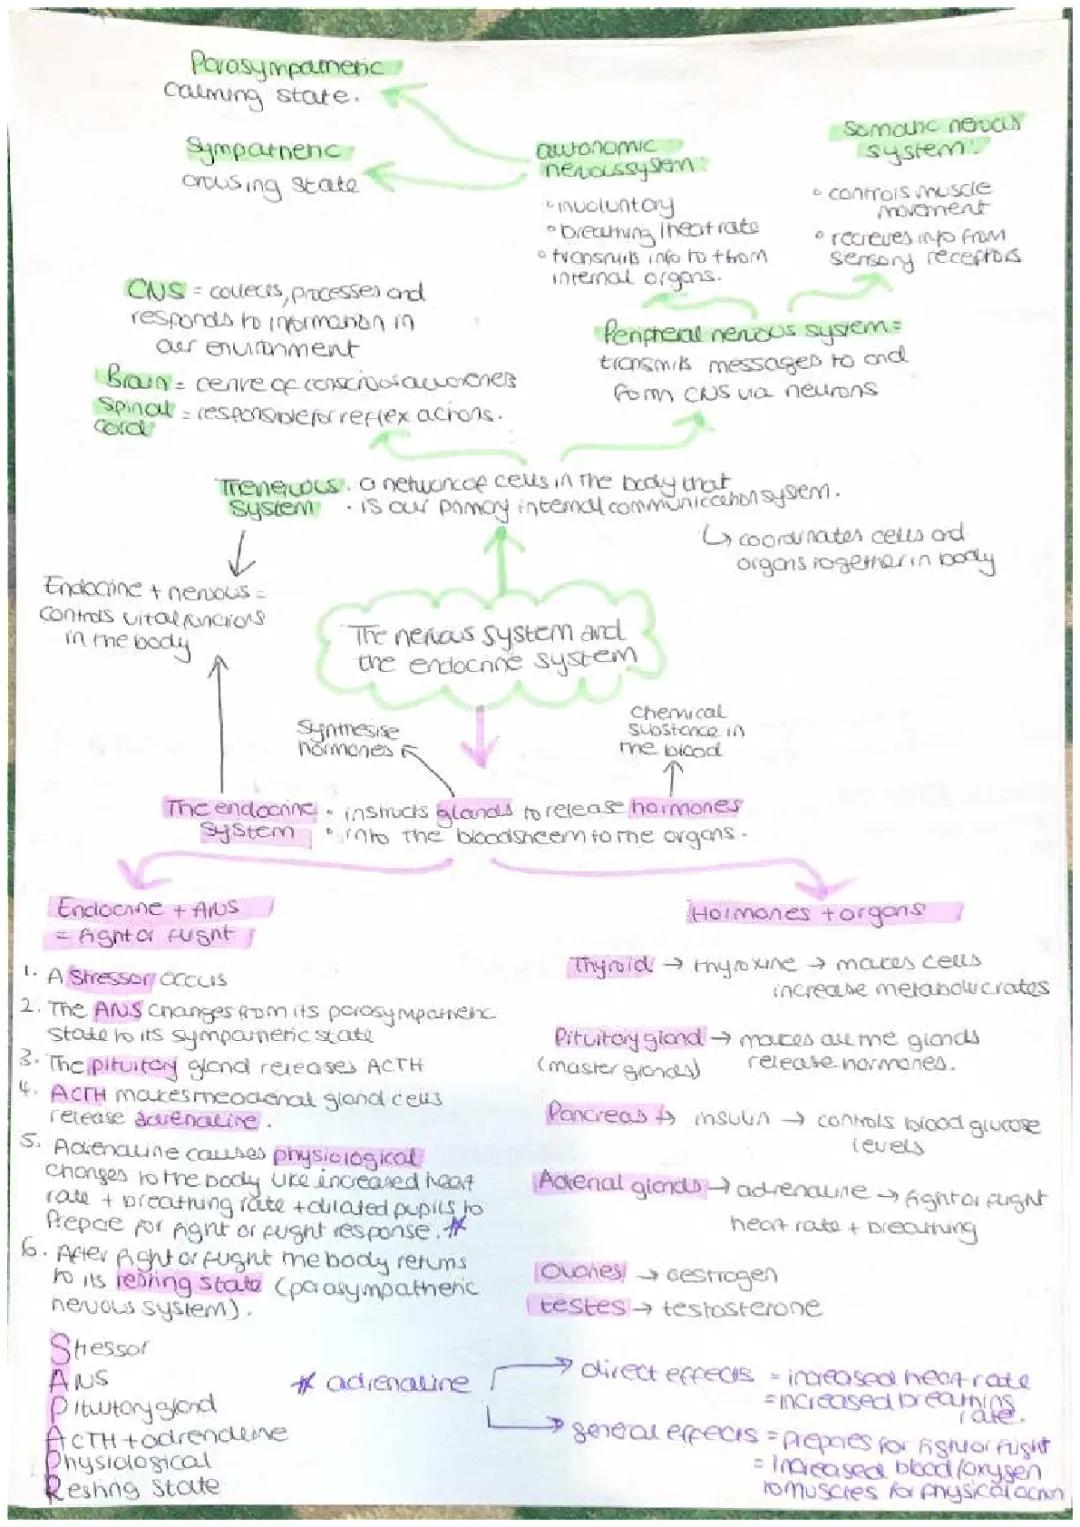 Parasympathetic
calming state.
Sympathetic
arousing state
autonomic
nervous system:
• involuntary
• breathing, heart rate
• transmits info to + from
internal organs.
Somatic nervous
system:
• controls muscle
movement
• recieves info from
sensory receptors
CNS = collects, processes and
responds to information in
our environment
Brain = centre of conscious awareness
Spinal = responsible for reflex actions.
cord
Peripheral nervous system =
transmits messages to and
form CNS via neurons
The nervous . a network of cells in the body that
system . is our primary internal communication system.
↳ coordinates cells and
organs together in body
Endocrine + nervous =
controls vital functions
in the body
The nervous system and
the endocrine system
Synthesise
hormones
Chemical
substance in
the blood
The endocrine • instructs glands to release hormones
System • into the bloodstream to the organs.
Endocrine + ANS
= fight or flight
1. A Stressor occurs
2. The ANS changes from its parasympathetic
state to its sympathetic state
3. The pituitary gland releases ACTH
4. ACTH makes the adrenal gland cells
release adrenaline.
5. Adrenaline causes physiological
changes to the body like increased heart
rate + breathing rate + dilated pupils to
Prepare for fight or flight response. *
6. After fight or flight the body returns
to its resting state (parasympathetic
nervous system).
Stressor
ANS
Pituitary gland
ACTH + adrenaline
Physiological
Resting State
Hormones + organs
Thyroid → thyroxine → makes cells
increase metabolic rates
Pituitary gland → makes all the glands
(master glands) release hormones.
Pancreas → insulin → controls blood glucose
levels
Adrenal glands → adrenaline → fight or flight
heart rate + breathing
Ovaries → oestrogen
testes → testosterone
* adrenaline
→ direct effects = increased heart rate
= increased breathing
rate.
→ general effects = prepares for fight or flight
= increased blood/oxygen
to muscles for physical action